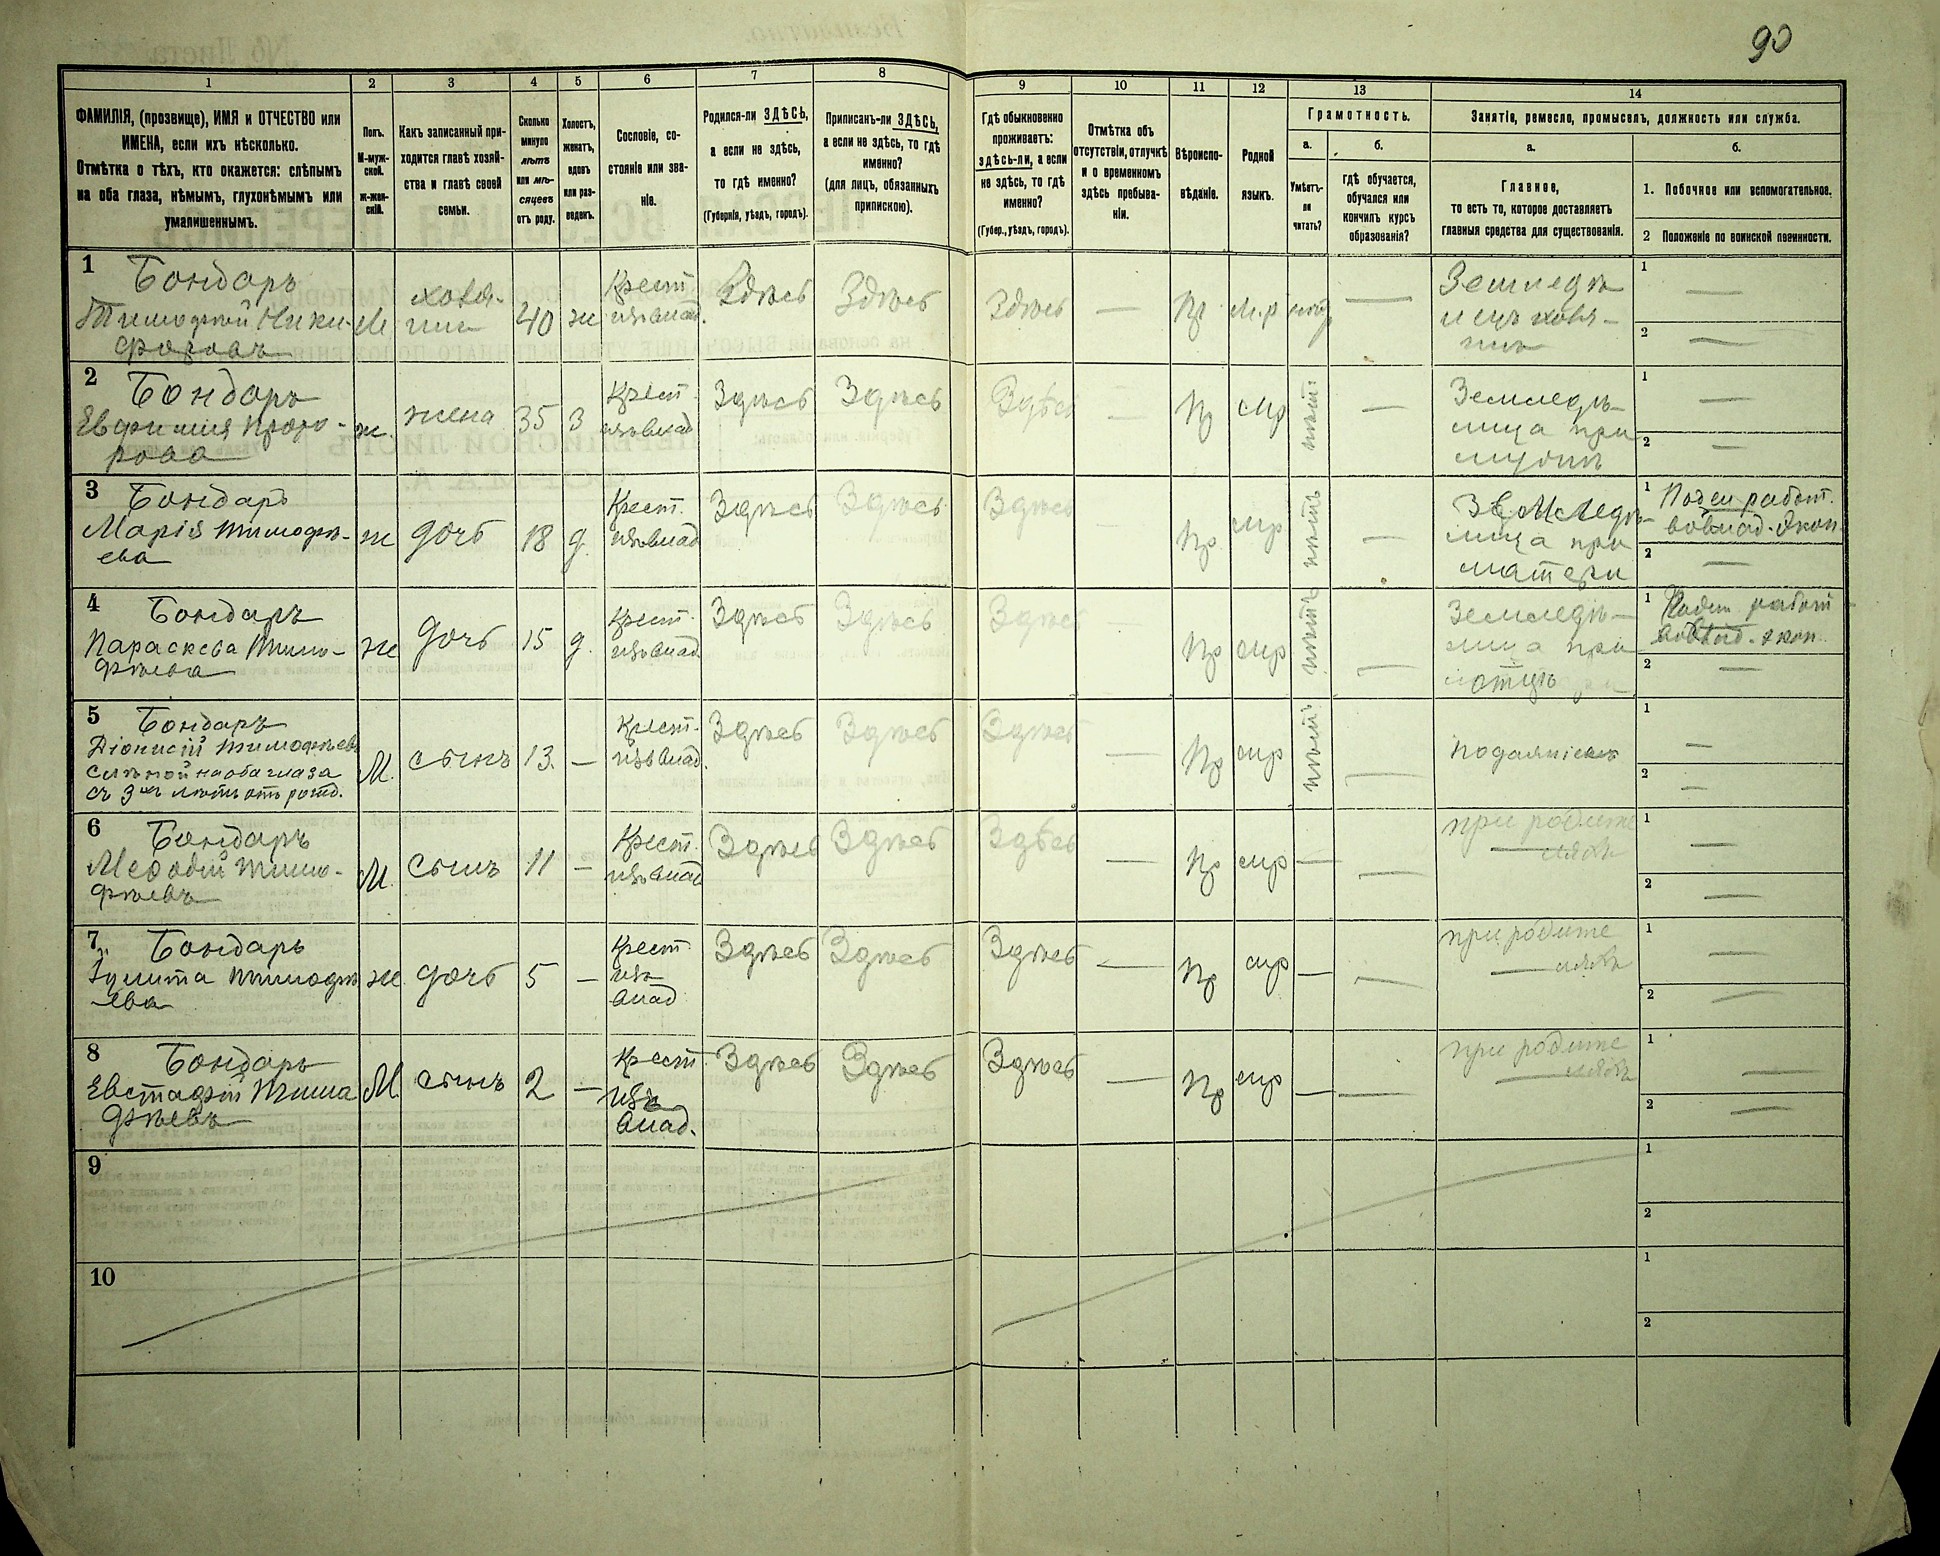 90
1 2 3 4 5 6 7 8 9 10 11 12 13 14
ФАМИЛІЯ, (прозвище), ИМЯ и ОТЧЕСТВО или
ИМЕНА, если ихъ нѣсколько.
Отмѣтка о тѣхъ, кто окажется: слѣпымъ
на оба глаза, нѣмымъ, глухонѣмымъ или
умалишеннымъ.
Полъ.
М-муж-
ской.
ж-жен-
скій.
Какъ записанный при-
ходится главѣ хозяй-
ства и главѣ своей
семьи.
Сколько
минуло
лѣтъ
или мѣ-
сяцевъ
отъ роду.
Холостъ,
женатъ,
вдовъ
или раз-
веденъ.
Сословіе, со-
стояніе или зва-
ніе.
Родился-ли ЗДѢСЬ,
а если не здѣсь,
то гдѣ именно?
(Губернія, уѣздъ, городъ).
Приписанъ-ли ЗДѢСЬ,
а если не здѣсь, то гдѣ
именно?
(для лицъ, обязанныхъ
припискою).
Гдѣ обыкновенно
проживаетъ:
здѣсь-ли, а если
не здѣсь, то гдѣ
именно?
(Губер., уѣздъ, городъ).
Отмѣтка объ
отсутствіи, отлучкѣ
и о временномъ
здѣсь пребыва-
ніи.
Вѣроиспо-
вѣданіе.
Родной
языкъ.
Грамотность.
а.
Умѣетъ-
ли
читать?
б.
гдѣ обучается,
обучался или
кончилъ курсъ
образованія?
Занятіе, ремесло, промыселъ, должность или служба.
а.
Главное,
то есть то, которое доставляетъ
главныя средства для существованія.
б.
1. Побочное или вспомогательное.
2 Положеніе по воинской повинности.
1 Бондарь
Тимофей Ники-
форовъ
М
хозя-
инъ
40
ж
Крест
изъ влад.
Здѣсь
Здѣсь
Здѣсь
—
Пр
м.р
—
Земледѣ
лецъ хозя-
инъ
1 —
2 —
2 Бондарь
Евфимия Прохо-
рова
ж.
жена
35
З
Крест.
изъ влад
Здѣсь
Здѣсь
Здѣсь
—
Пр
мр
нѣтъ
—
Земледѣ-
лица при
мужѣ
1 —
2 —
3 Бондарь
Марія Тимофѣ-
ева
ж
дочь
18
д.
Крест.
изъ влад
Здѣсь
Здѣсь
Здѣсь
Пр.
мр
нѣтъ
—
Земледѣ-
лица при
матери
1 Поден работ.
во влад. экон
2 —
4 Бондарь
Параскева Тимо-
фѣева
ж
дочь
15
д.
Крест.
изъ влад.
Здѣсь
Здѣсь
Здѣсь
Пр
мр
нѣтъ
—
Земледѣ-
лица при
отцѣ
1 Поден работ
во влад. экон
2 —
5 Бондарь
Діонисій Тимофѣевъ
слѣпой на оба глаза
съ 3хъ лѣтъ отъ рожд.
М.
сынъ
13.
—
Крест.
изъ влад.
Здѣсь
Здѣсь
Здѣсь
—
Пр
мр
нѣтъ
—
1 —
2 —
6 Бондарь
Мефодій Тимо-
фѣевъ
М.
сынъ
11
—
Крест.
изъ влад
Здѣсь
Здѣсь
Здѣсь
—
Пр
мр
—
—
при родите
ляхъ
1 —
2 —
7 Бондарь
Іулита Тимофѣ
ева
ж
дочь
5
—
Крест
изъ
влад
Здѣсь
Здѣсь
Здѣсь
—
Пр
мр
—
—
при родите
ляхъ
1 —
2 —
8 Бондарь
Евстафій Тимо
фѣевъ
М.
сынъ
2
—
Крест.
изъ
влад.
Здѣсь
Здѣсь
Здѣсь
—
Пр
мр
—
—
при родите
ляхъ
1 —
2 —
9
1
2
10
1
2